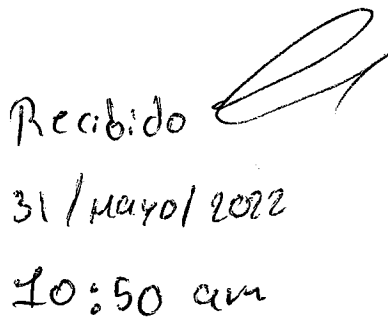 Recibido
31/Mayo/2022
10:50 am